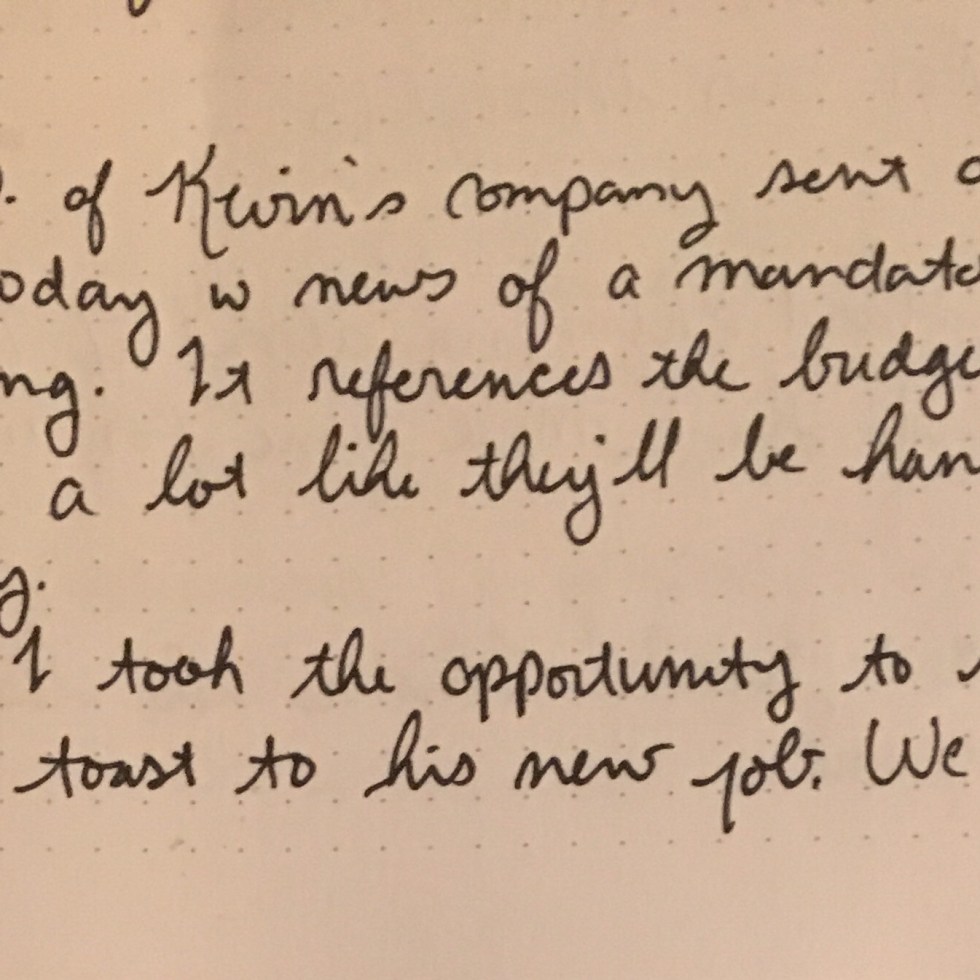 of Kevin's company sent
oday w news of a mandato
ng. It references the budge
a lot like they'll be han
y.
I took the opportunity to
toast to his new job. We